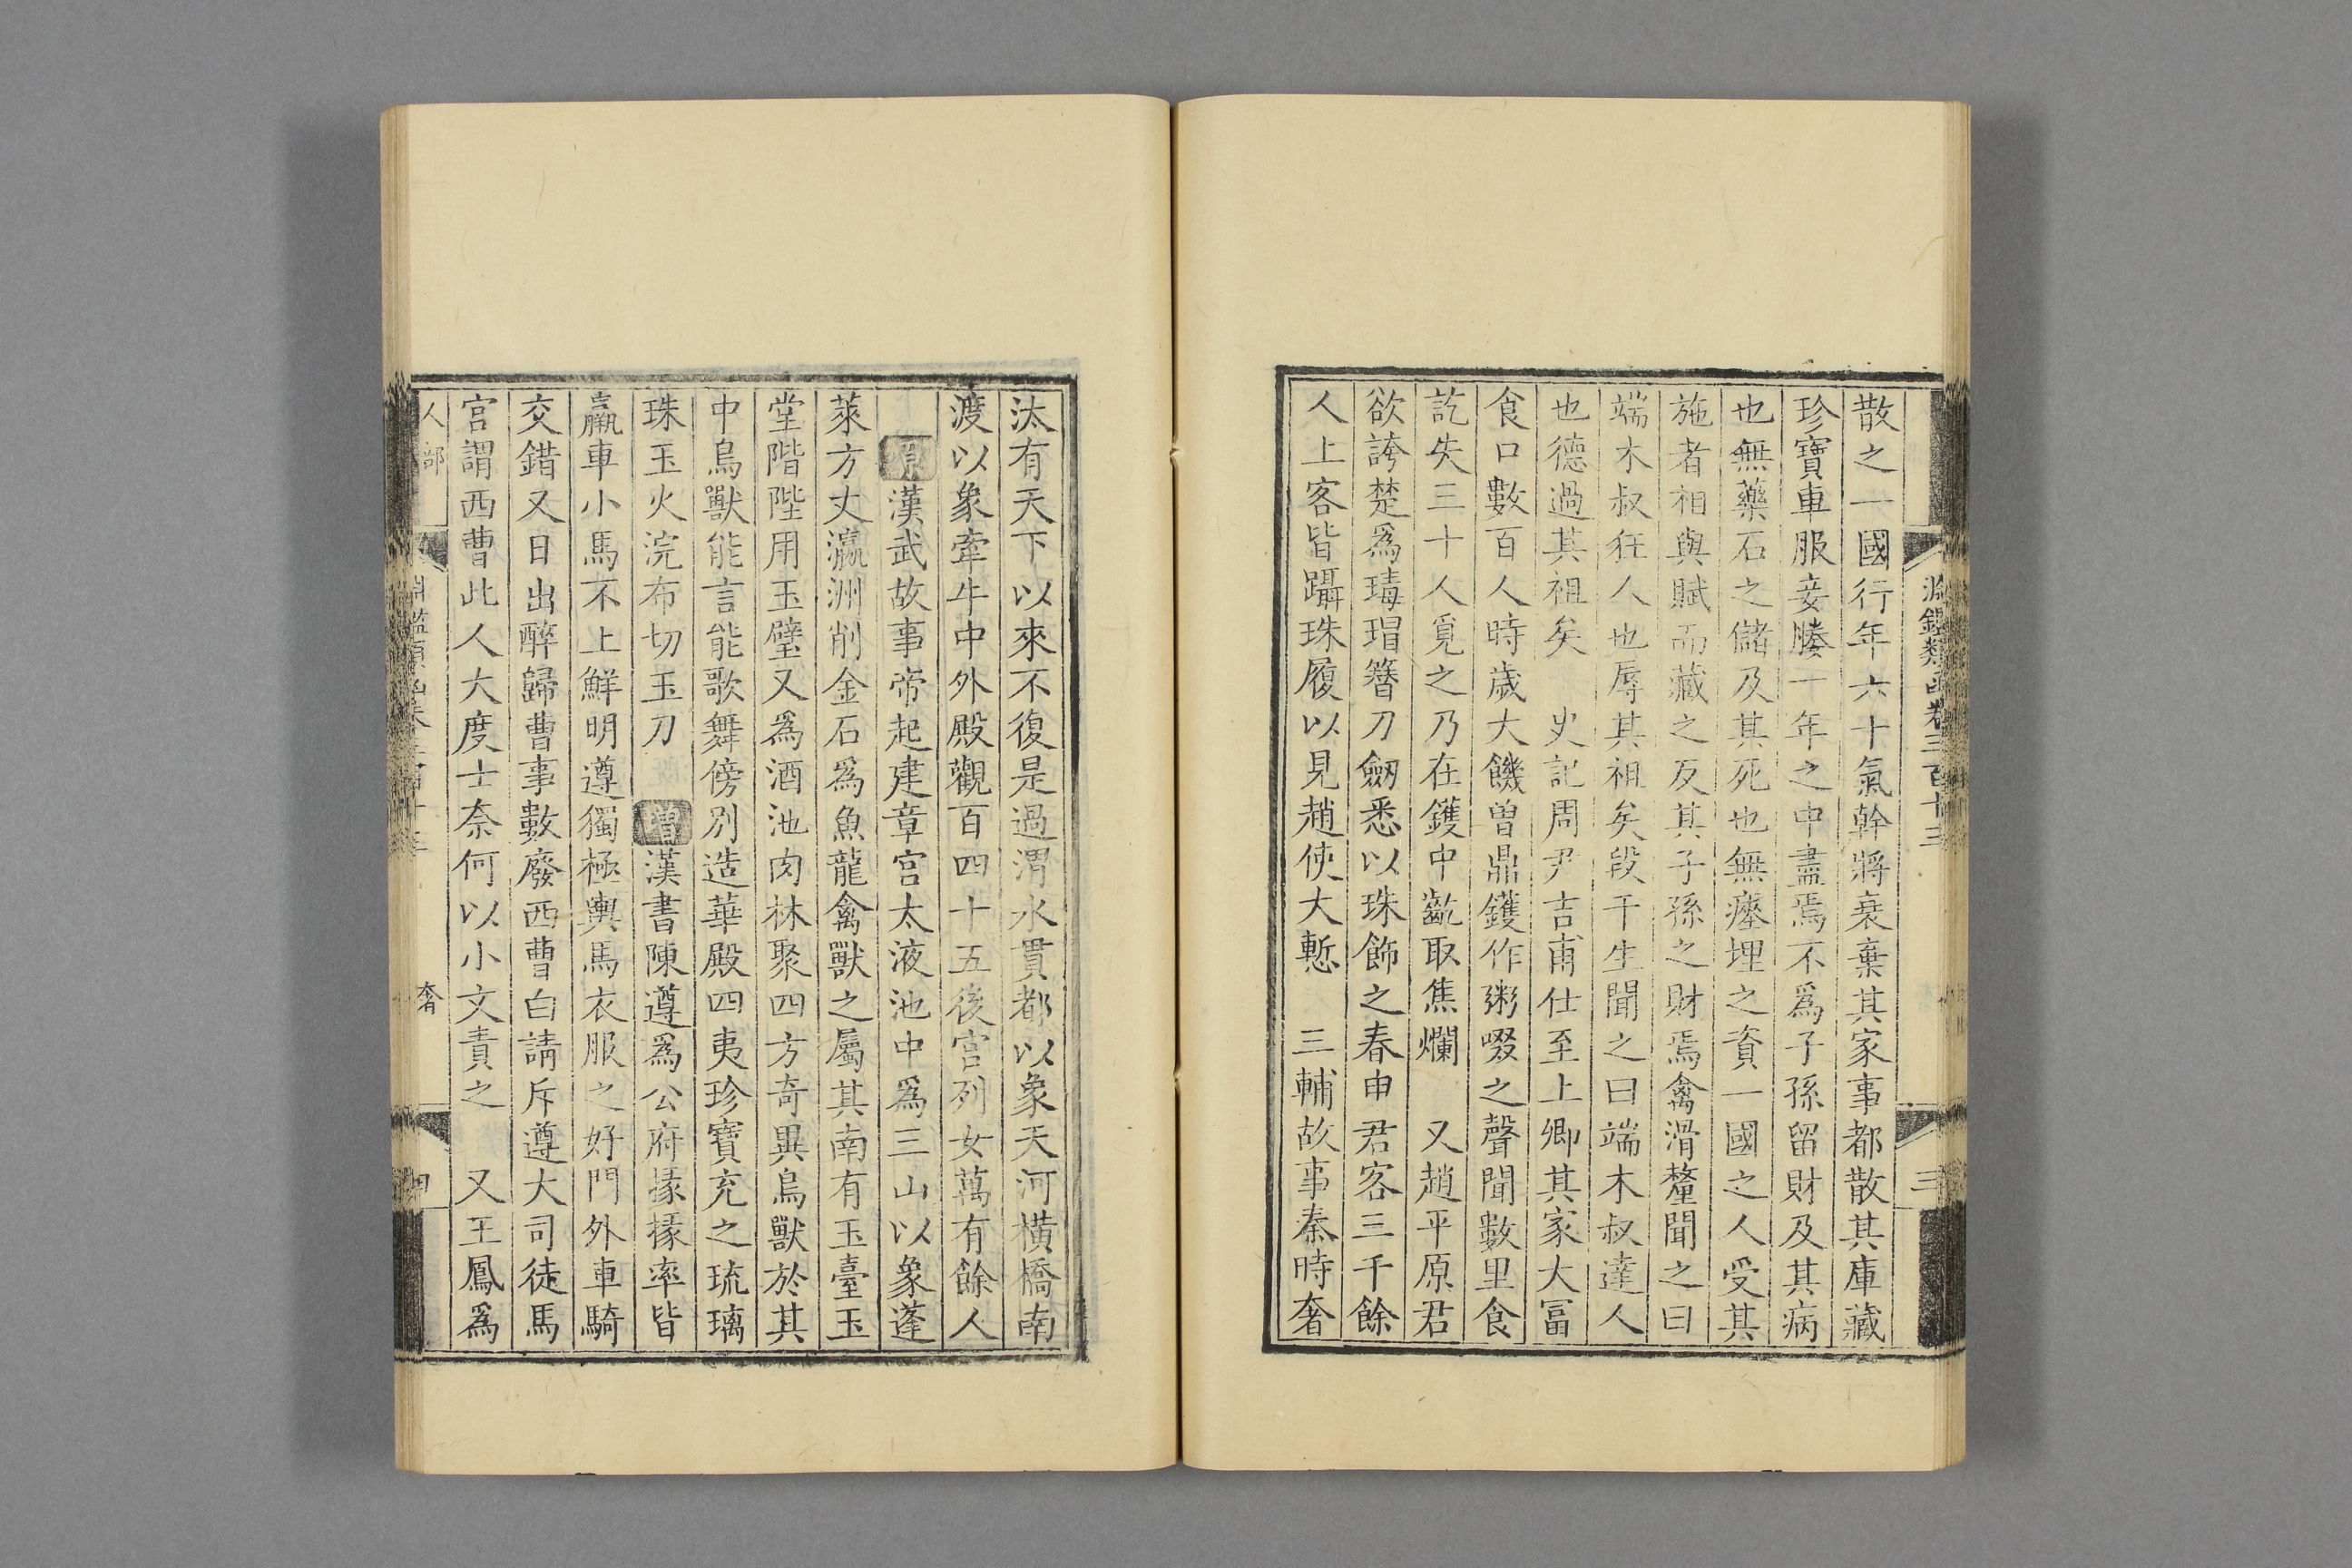 淵鑑類函卷三百十三
三
散之一國行年六十氣幹將衰棄其家事都散其庫藏
珍寶車服妾媵一年之中盡焉不爲子孫留財及其病
也無藥石之儲及其死也無瘞埋之資一國之人受其
施者相與賦而藏之反其子孫之財焉禽滑釐聞之曰
端木叔狂人也辱其祖矣段干生聞之曰端木叔達人
也德過其祖矣　史記周尹吉甫仕至上卿其家大冨
食口數百人時歲大饑曽鼎鑊作粥啜之聲聞數里食
訖失三十人覓之乃在鑊中齕取焦爛　又趙平原君
欲誇楚爲瑇瑁簪刀劒悉以珠飾之春申君客三千餘
人上客皆躡珠履以見趙使大慙　三輔故事秦時奢
汰有天下以來不復是過渭水貫都以象天河橫橋南
渡以象牽牛中外殿觀百四十五後宮列女萬有餘人
原漢武故事帝起建章宮太液池中爲三山以象蓬
萊方丈瀛洲削金石爲魚龍禽獸之屬其南有玉臺玉
堂階陛用玉璧又爲酒池肉林聚四方奇異鳥獸於其
中鳥獸能言能歌舞傍別造華殿四夷珍寶充之琉璃
珠玉火浣布切玉刀　增漢書陳遵爲公府掾掾率皆
羸車小馬不上鮮明遵獨極輿馬衣服之好門外車騎
交錯又日出醉歸曹事數廢西曹白請斥遵大司徒馬
宮謂西曹此人大度士奈何以小文責之　又王鳳爲
人部
奢